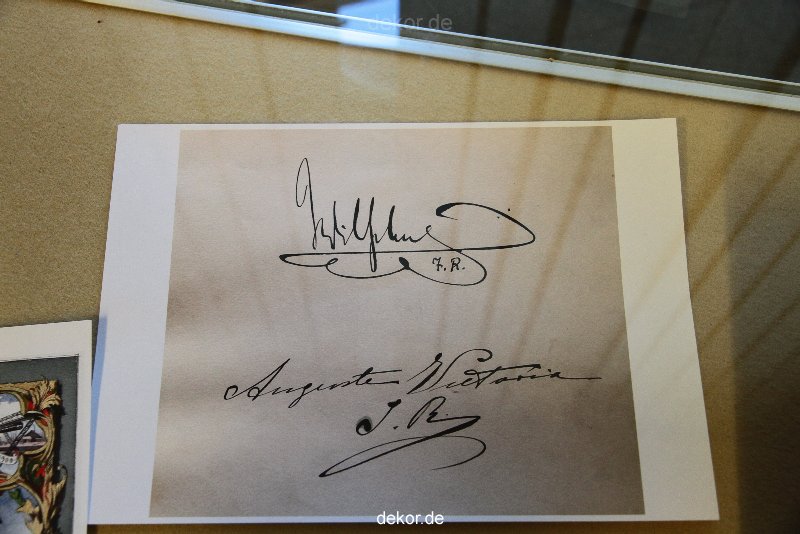 dekor.de
Wilhelm
I. R.
Auguste Victoria
I. R.
dekor.de